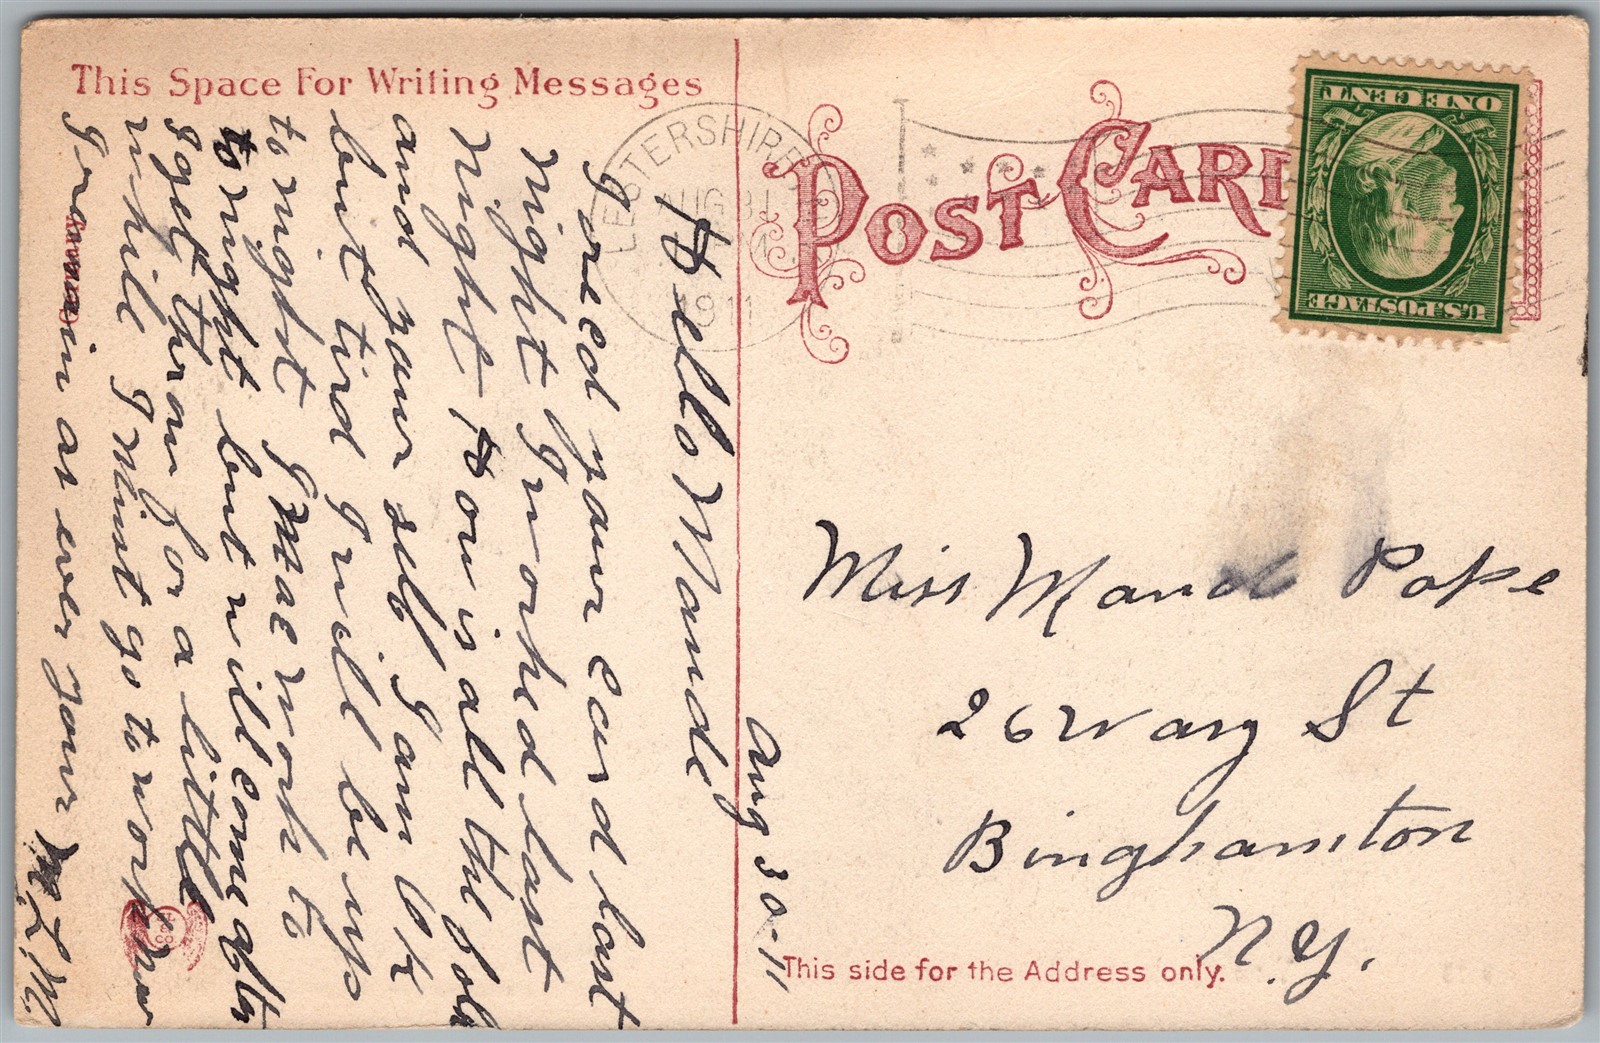 This Space For Writing Messages
POST CARD
LESTERSHIRE
AUG 31
1911
U.S. POSTAGE
ONE CENT
Hello Maude
Aug 30-11
I recd your card last
night I worked last
night How is all the folk
and your self I am OK
but tird I will be up
to night I Mae work to
to night but will come after
I get throu for a little
while I Must go to work now
I remain as ever your
L. M.
Miss Maude Pope
26 Wary St
Binghamton
N.Y.
This side for the Address only.